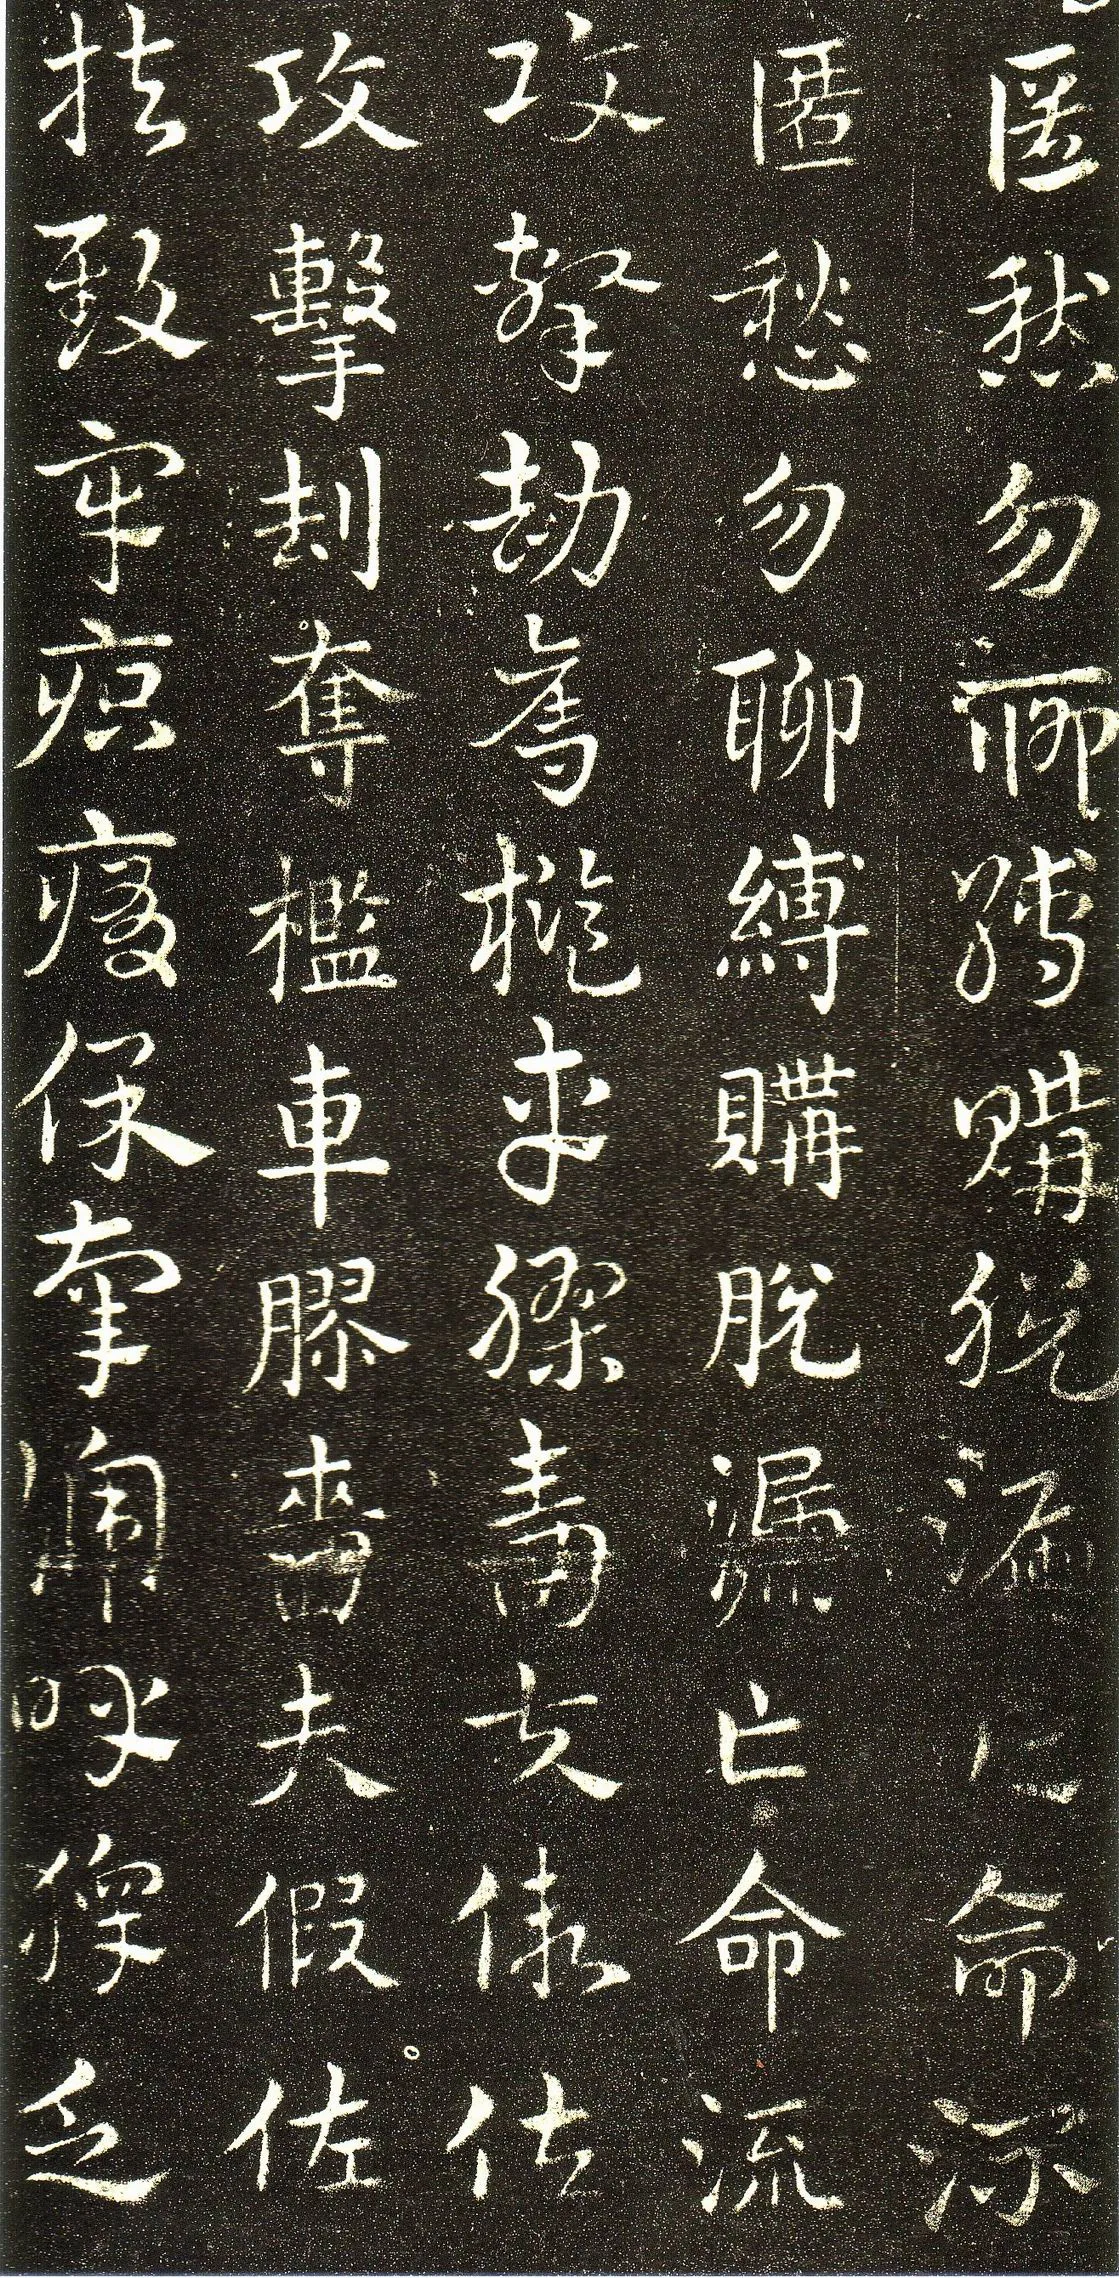 匿愁勿聊縛購脫漏亡命流
匿愁勿聊縛購脫漏亡命流
攻擊劫奪檻車膠嗇夫假佐
攻擊刦奪檻車膠嗇夫假佐
扶致牢疻痏保辜啼呼獆乏